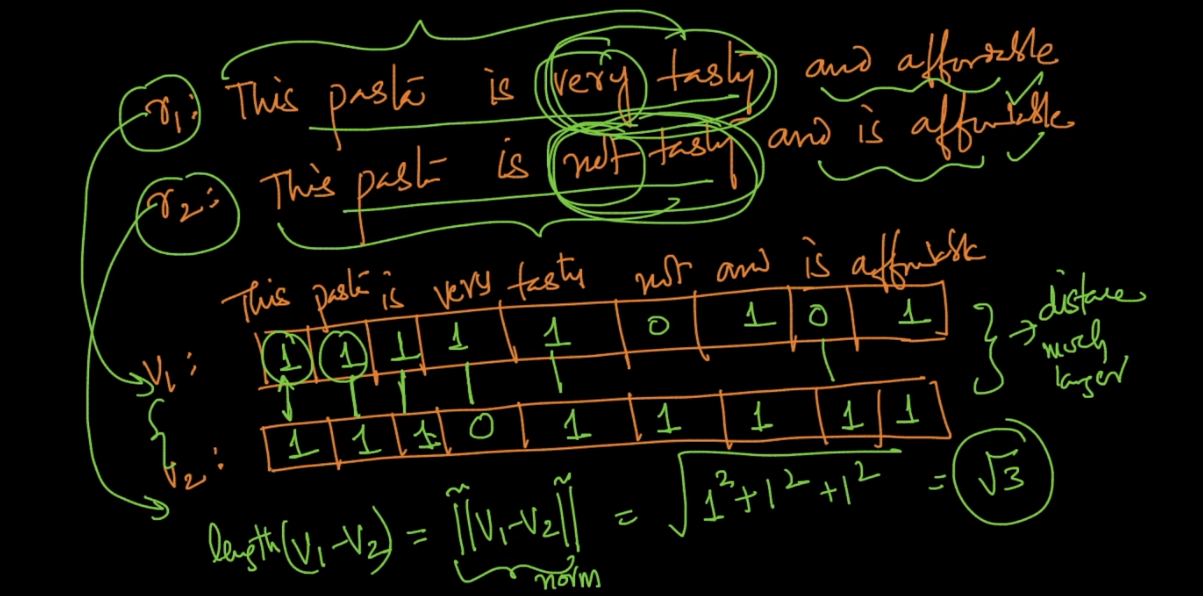 r1: This pasta is very tasty and affordable
r2: This pasta is not tasty and is affordable
This pasta is very tasty not and is affordable
V1: 1 1 1 1 1 0 1 0 1
V2: 1 1 1 0 1 1 1 1 1
→ distance
much
larger
length(V1-V2) = ||V1-V2|| = √(1²+1²+1²) = √3
norm